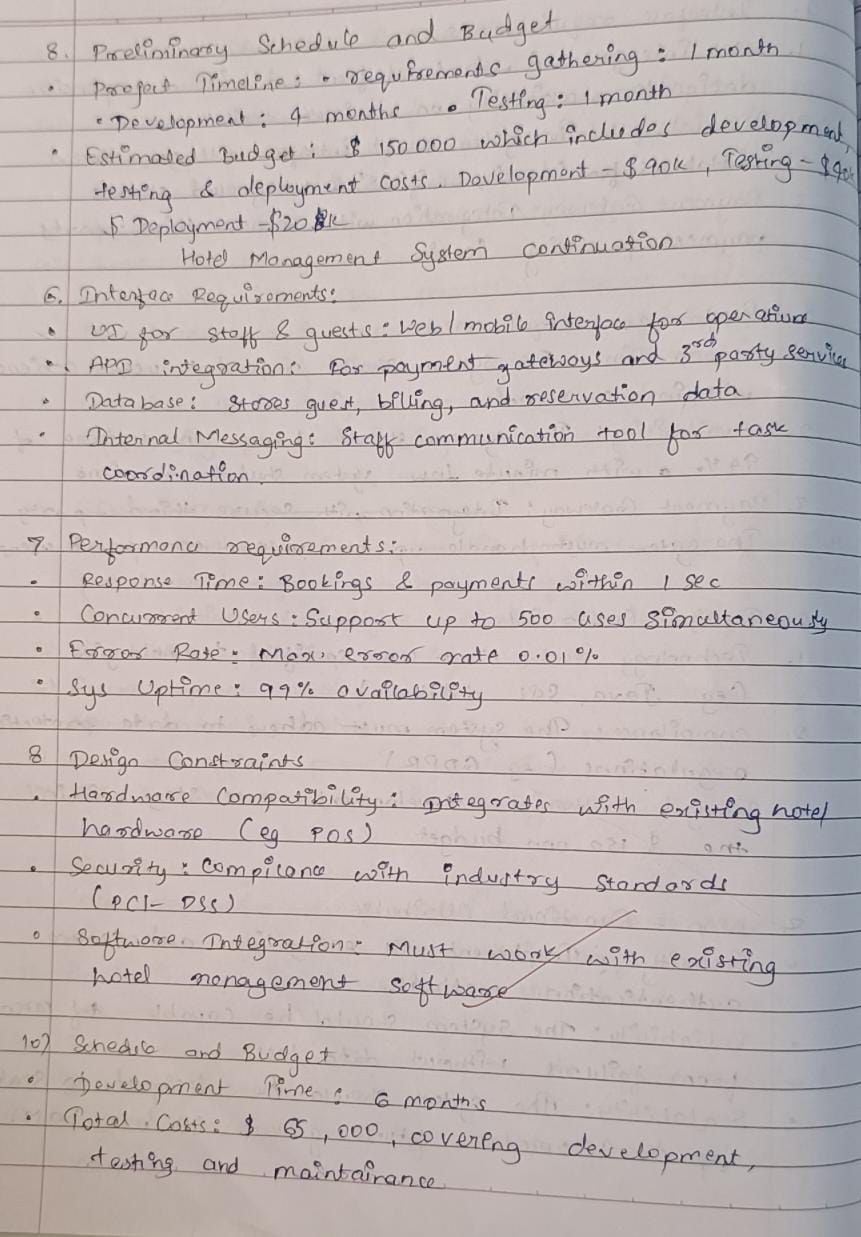 8. Preliminary Schedule and Budget
• Project Timeline: • requirements gathering: 1 month
• Development: 4 months • Testing: 1 month
• Estimated Budget: $ 150000 which includes development,
testing & deployment costs. Development - $90k, Testing - $40k
& Deployment - $20k
Hotel Management System continuation
6. Interface Requirements:
• UI for staff & guests: Web/mobile interface for operations
• API integration: For payment gateways and 3rd party services
• Database: Stores guest, billing, and reservation data
• Internal Messaging: Staff communication tool for task
coordination.
7 Performanc requirements:
• Response Time: Bookings & payments within 1 sec
• Concurrent Users: Support up to 500 uses simultaneously
• Error Rate: Max error rate 0.01%
• Sys Uptime: 99% availability
8 Design Constraints
• Hardware Compatibility: Integrates with existing hotel
hardware (eg POS)
• Security: Complance with industry standards
(PCI-DSS)
• Software Integration: Must work with existing
hotel management software
10) Schedule and Budget
• Development Time: 6 months
• Total Costs: $ 65,000, covering development,
testing and maintainance